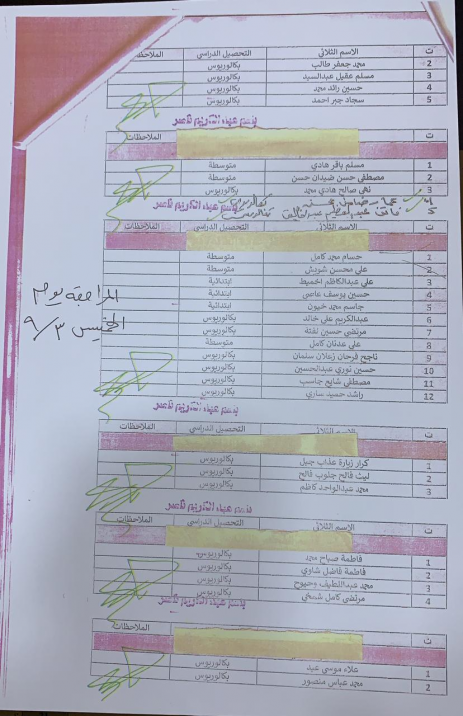 ت الاسم الثلاثي التحصيل الدراسي الملاحظات
2 محمد جعفر طالب بكالوريوس
3 مسلم عقيل عبدالسيد بكالوريوس
4 حسين رائد محمد بكالوريوس
5 سجاد جبر احمد بكالوريوس
ت الملاحظات
1 مسلم باقر هادي متوسطة
2 مصطفى حسن ضيدان حسن متوسطة
3 نهى صالح هادي محمد بكالوريوس
4
5 بكالوريوس
ت الاسم الثلاثي التحصيل الدراسي الملاحظات
1 حسام محمد كامل متوسطة
2 علي محسن شويش متوسطة
3 علي عبدالكاظم اخميط ابتدائية
4 حسين يوسف عاصي ابتدائية
5 جاسم محمد خيون ابتدائية
6 عبدالكريم علي خالد بكالوريوس
7 مرتضى حسين لفتة بكالوريوس
8 علي عدنان كامل متوسطة
9 ناجح فرحان زعلان سلمان بكالوريوس
10 حسين نوري عبدالحسين بكالوريوس
11 مصطفى شايع جاسب بكالوريوس
12 راشد حميد ساري بكالوريوس
المراجعة يوم
الخميس ٩/٣
ت الاسم الثلاثي التحصيل الدراسي الملاحظات
1 كرار زيارة عذاب جبل بكالوريوس
2 ليث فالح جلوب فالح بكالوريوس
3 محمد عبدالواحد كاظم بكالوريوس
ت الاسم الثلاثي التحصيل الدراسي الملاحظات
1 فاطمة صباح محمد بكالوريوس
2 فاطمة فاضل شاوي بكالوريوس
3 محمد عبداللطيف وحيوح بكالوريوس
4 مرتضى كامل شمخي بكالوريوس
ت الملاحظات
1 علاء موسى عبد بكالوريوس
2 محمد عباس منصور بكالوريوس